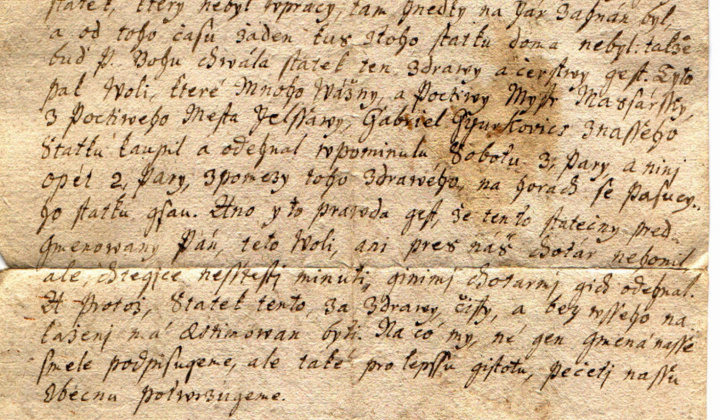 statek, ktery nebyl w pracy, tam hnedky na Jar zahnán byl,
a od toho času žaden kus z toho statku doma nebyl: takže
buď P. Bohu chwála statek ten zdrawy a čerstwy gest. Tyto
pak Woli, které Mnoho Wážny, a Poctiwy Mystr Massársky,
z Poctiweho Mesta Jelssawy, Gabriel Gyurkovics z nasseho
Statku kaupil a odehnal w pominulu Sobotu 3, Pary, a ninj
opět 2, Pary, z pomezy toho zdraweho, na horach se Pasucy-
ho statku gsau. Ano y to prawda gest, že tento statečny pred-
gmenowany Pán, teto Woli, ani pres náš chotár nehonil
ale, chtegice nessťestj minuti, ginimi chotarmi gich odehnal.
A Protož, Statek tento, za Zdrawy, čisty, a bez wsseho na-
każenj má Æstimowan byti. Na čo my, né gen gmená nasse
smele podpisugeme, ale také pro lepssu gistotu, Pečetj nassu
Obecnu potwrzugeme.